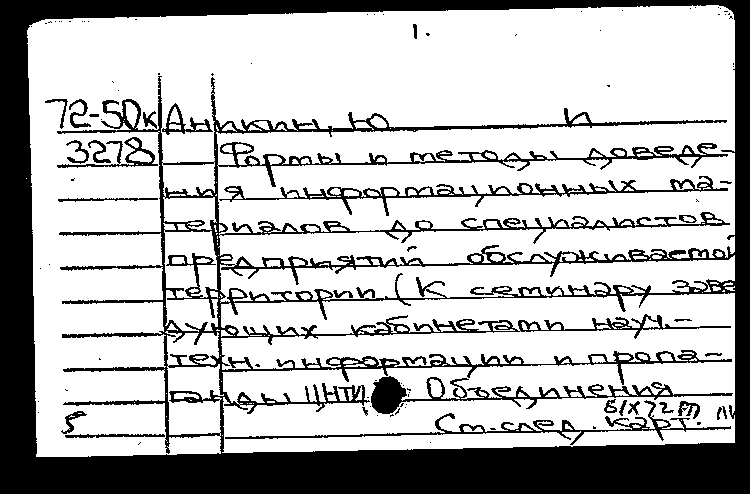 1.
72-50к Аникин, Ю И
3278 Формы и методы доведе-
ния информационных ма-
териалов до специалистов
предприятий обслуживаемой
территории. (К семинару заве
дующих кабинетами науч.-
техн. информации и пропа-
ганды ЦНТИ Объединения
5 Ст. след. карт.